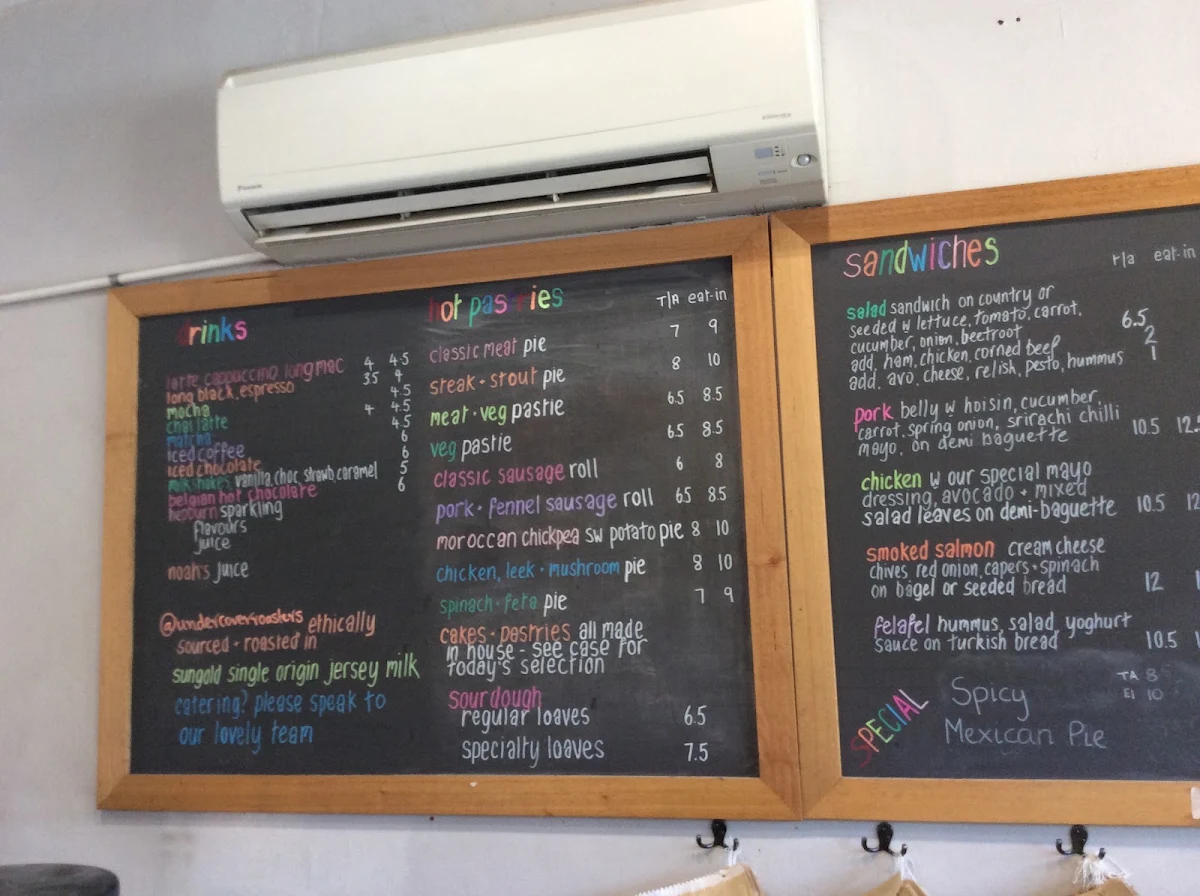 DAIKIN
drinks
latte cappuccino long mac 4 4.5
long black, espresso 3.5 4
mocha 4.5
chai latte 4 4.5
matcha 4.5
iced coffee 6
iced chocolate 6
milkshakes vanilla, choc, strawb, caramel 5
belgian hot chocolate 6
hepburn sparkling
flavours
juice
noah's juice
@undercoverroasters ethically
sourced + roasted in
sungold single origin jersey milk
catering? please speak to
our lovely team
hot pastries T/A eat-in
classic meat pie 7 9
steak + stout pie 8 10
meat + veg pastie 6.5 8.5
veg pastie 6.5 8.5
classic sausage roll 6 8
pork + fennel sausage roll 6.5 8.5
moroccan chickpea sw potato pie 8 10
chicken, leek + mushroom pie 8 10
spinach + feta pie 7 9
cakes + pastries all made
in house - see case for
today's selection
sourdough
regular loaves 6.5
specialty loaves 7.5
sandwiches T/a eat-in
salad sandwich on country or
seeded w lettuce, tomato, carrot,
cucumber, onion, beetroot 6.5
add, ham, chicken, corned beef 2
add, avo, cheese, relish, pesto, hummus 1
pork belly w hoisin, cucumber,
carrot, spring onion, srirachi chilli
mayo, on demi baguette 10.5 12.5
chicken w our special mayo
dressing, avocado + mixed
salad leaves on demi-baguette 10.5
smoked salmon cream cheese
chives, red onion, capers + spinach
on bagel or seeded bread 12
felafel hummus, salad, yoghurt
sauce on turkish bread 10.5
SPECIAL
Spicy TA 8
Mexican Pie EI 10